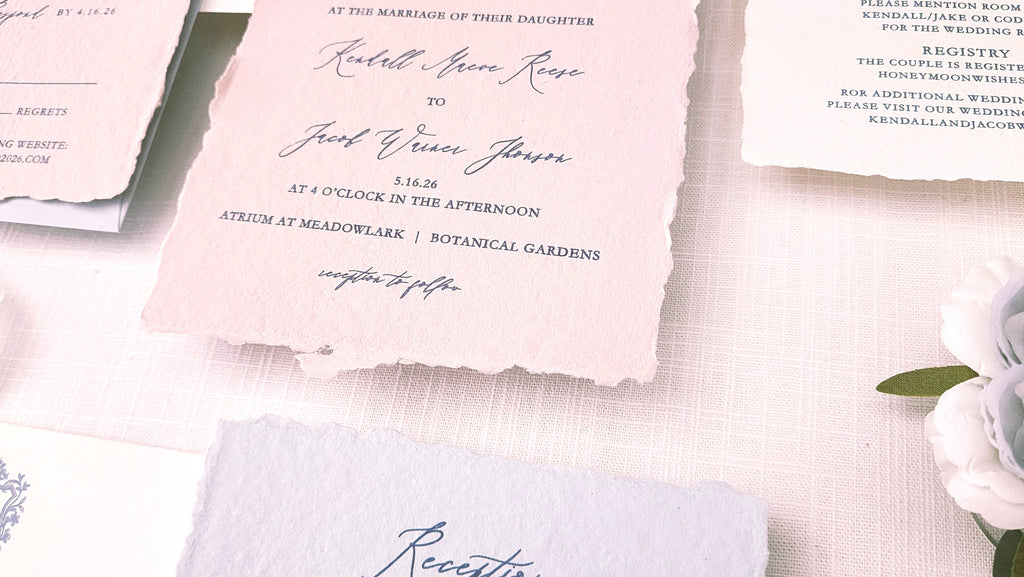 BY 4.16.26
REGRETS
NG WEBSITE:
2026.COM
AT THE MARRIAGE OF THEIR DAUGHTER
Kendall Maeve Reese
TO
Jacob Warner Jhonson
5.16.26
AT 4 O'CLOCK IN THE AFTERNOON
ATRIUM AT MEADOWLARK | BOTANICAL GARDENS
reception to follow
PLEASE MENTION ROOM
KENDALL/JAKE OR COD
FOR THE WEDDING R
REGISTRY
THE COUPLE IS REGISTE
HONEYMOONWISHES
ROR ADDITIONAL WEDDIN
PLEASE VISIT OUR WEDDING
KENDALLANDJACOBW
Reception